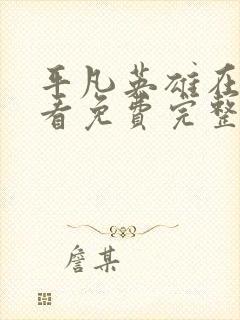 平凡英雄在
看免费完整
詹某